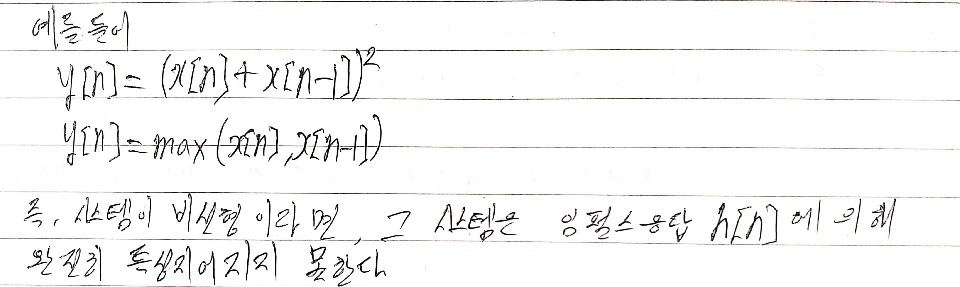 예를 들어
y[n] = (x[n] + x[n-1])²
y[n] = max(x[n], x[n-1])
즉, 시스템이 비선형 이라면, 그 시스템은 임펄스응답 h[n]에 의해
완전히 특징지어지지 못한다